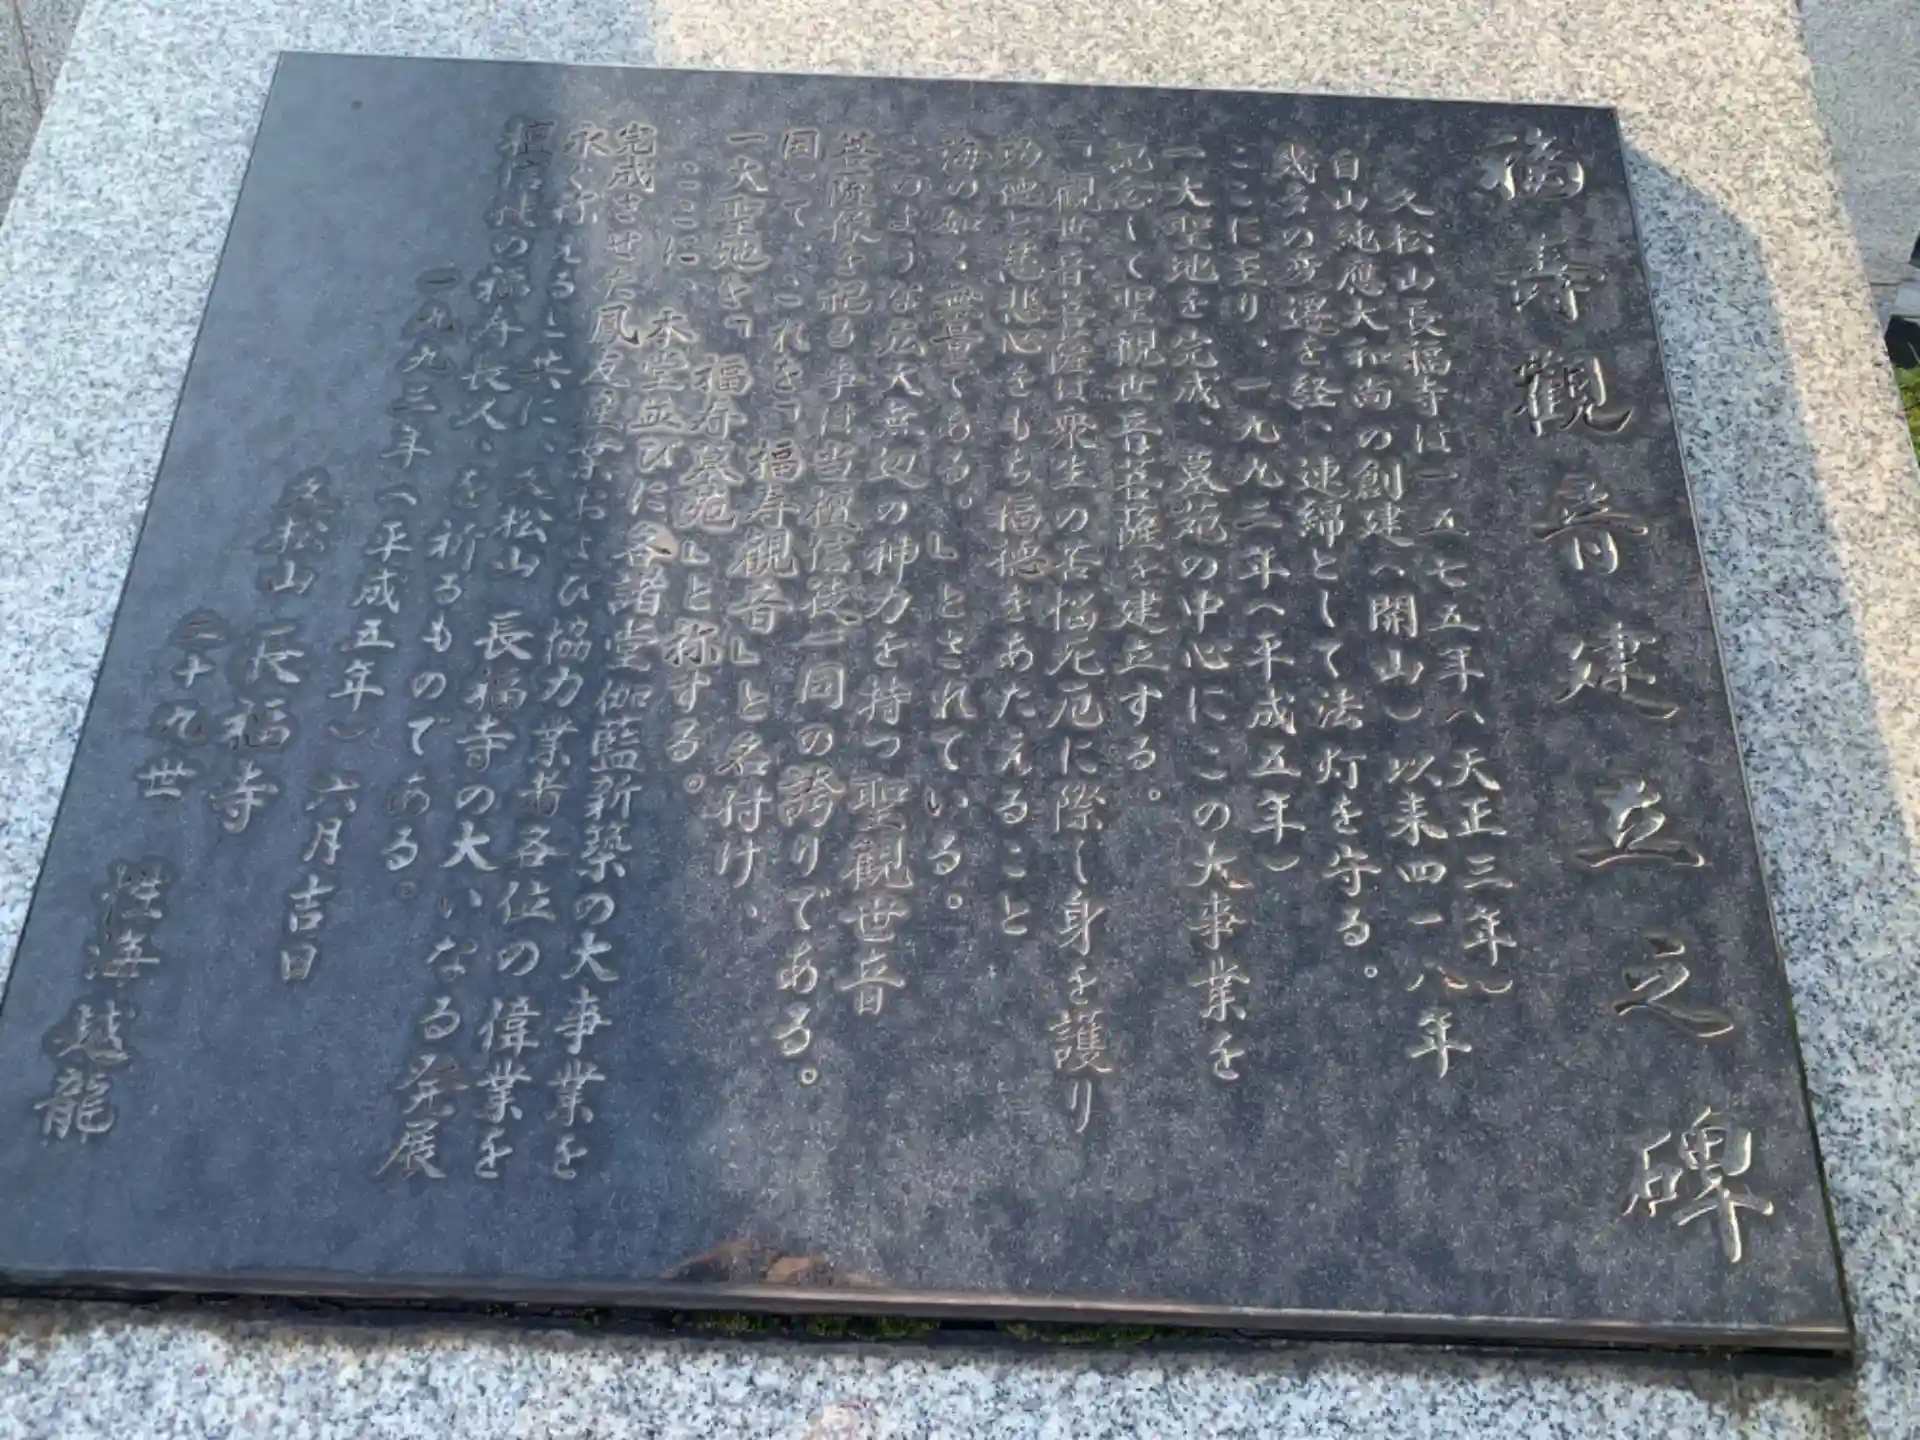 福寿觀音建立之碑
久松山長福寺は一五七五年(天正三年)
自山純應大和尚の創建(開山)以来四一八年
幾多の変遷を経、連綿として法灯を守る。
ここに至り、一九九三年(平成五年)
一大聖地を完成、墓苑の中心にこの大事業を
記念して聖観世音菩薩を建立する。
「観世音菩薩は衆生の苦悩死厄に際し身を護り
功徳と慈悲心をもち福徳をあたえること
海の如く無量である。」とされている。
このような広大無辺の神力を持つ聖観世音
菩薩像を祀る事は当檀信徒一同の誇りである。
因って、これを「福寿観音」と名付け、
一大聖地を「福寿墓苑」と称する。
ここに、本堂並びに各諸堂伽藍新築の大事業を
完成させた凤夏堂業および協力業者各位の偉業を
永く称えると共に、久松山長福寺の大いなる発展
檀信徒の福寿長久、を祈るものである。
一九九三年(平成五年)六月吉日
久松山長福寺
二十九世 性海越龍